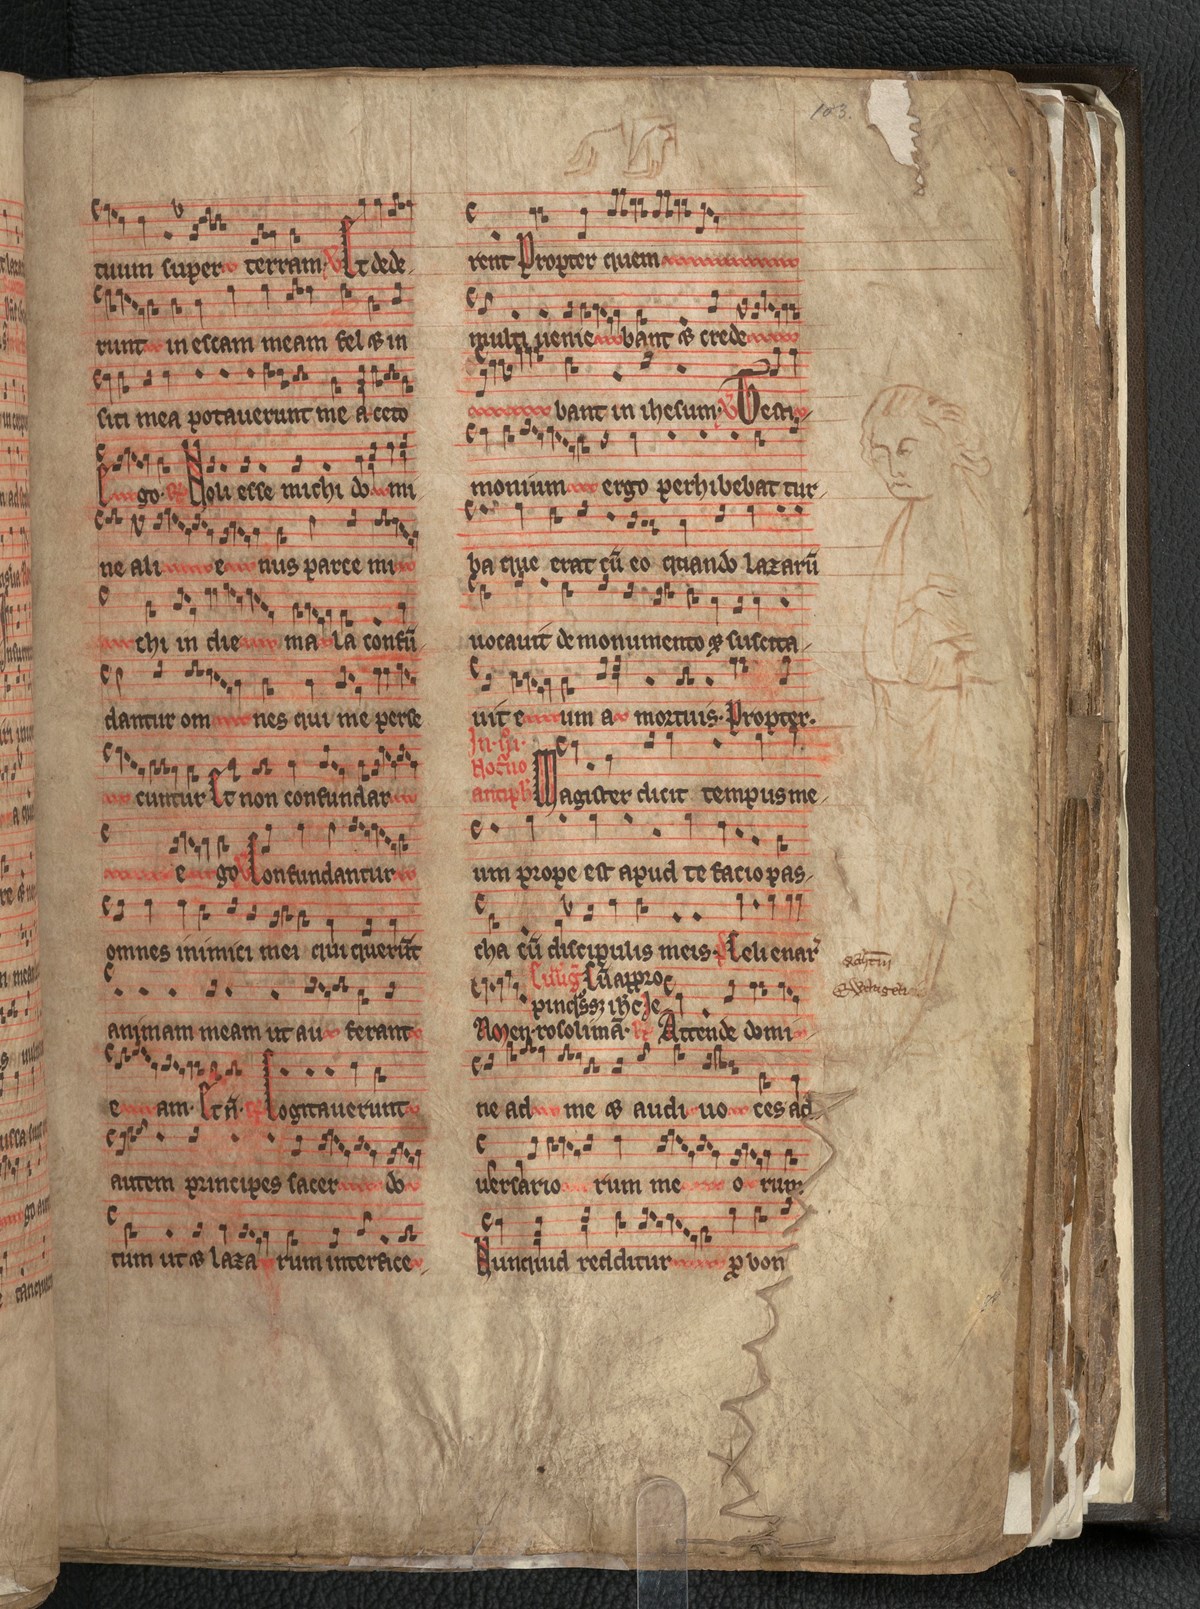 103.
tuum super terram. V Et dede-
runt in escam meam fel & in
siti mea potaverunt me aceto
E go. R Noli esse michi do mi
ne ali e nus parce mi
chi in die ma la confu̅
dantur om nes qui me perse
cuntur Et non confundar
e go V Confundantur
omnes inimici mei qui queru̅t
animam meam ut au ferant
e am. Et n̅. R Cogitauerunt
autem principes sacer do
tum ut & laza rum interfice-
rent Propter quem
multi uenie bant & crede
bant in ihesum. V Testi-
monium ergo perhibebat tur-
ba que erat cu̅ eo quando lazaru̅
uocauit de monumento & suscita-
uit e um a mortuis. Propter.
In .iii.
Noct̅no
antiph̅ Magister dicit tempus me-
um prope est apud te facio pas-
cha cu̅ discipulis meis. Celi enar̅
Cu̅ appro
pinq̅ss; ih̅c Je
rosolima̅. R Attende domi-
ne ad me & audi uo ces ad
uersario rum me o rum
Nunquid redditur p̱ bon